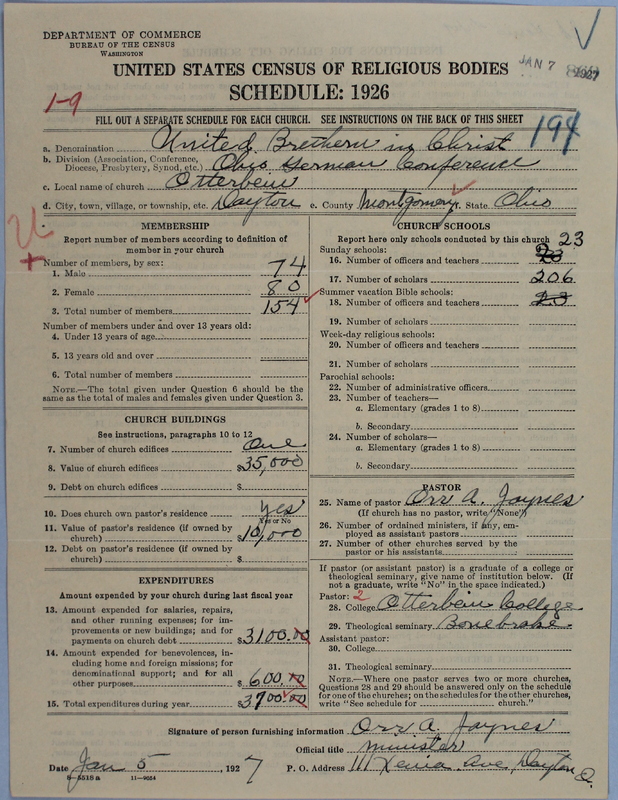 DEPARTMENT OF COMMERCE
BUREAU OF THE CENSUS
WASHINGTON
JAN 7 1927
UNITED STATES CENSUS OF RELIGIOUS BODIES
SCHEDULE: 1926
1-9
FILL OUT A SEPARATE SCHEDULE FOR EACH CHURCH. SEE INSTRUCTIONS ON THE BACK OF THIS SHEET
194
a. Denomination United Brethern in Christ
b. Division (Association, Conference,
Diocese, Presbytery, Synod, etc.) Ohio German Conference
c. Local name of church Otterbein
d. City, town, village, or township, etc. Dayton e. County Montgomery f. State. Ohio
MEMBERSHIP
Report number of members according to definition of
member in your church
Number of members, by sex:
1. Male 74
2. Female 80
3. Total number of members 154
Number of members under and over 13 years old:
4. Under 13 years of age
5. 13 years old and over
6. Total number of members
NOTE.—The total given under Question 6 should be
same as the total of males and females given under Question 3.
CHURCH BUILDINGS
See instructions, paragraphs 10 to 12
7. Number of church edifices One
8. Value of church edifices $35,000
9. Debt on church edifices $
10. Does church own pastor's residence Yes
Yes or No
11. Value of pastor's residence (if owned by
church) $10,000
12. Debt on pastor's residence (if owned by
church) $
EXPENDITURES
Amount expended by your church during last fiscal year
13. Amount expended for salaries, repairs,
and other running expenses; for im-
provements or new buildings; and for
payments on church debt $3100.00
14. Amount expended for benevolences, in-
cluding home and foreign missions; for
denominational support; and for all
other purposes $600.00
15. Total expenditures during year $3700.00
CHURCH SCHOOLS
Report here only schools conducted by this church
Sunday schools: 23
16. Number of officers and teachers 23
17. Number of scholars 206
Summer vacation Bible schools:
18. Number of officers and teachers 23
19. Number of scholars
Week-day religious schools:
20. Number of officers and teachers
21. Number of scholars
Parochial schools:
22. Number of administrative officers
23. Number of teachers—
a. Elementary (grades 1 to 8)
b. Secondary
24. Number of scholars—
a. Elementary (grades 1 to 8)
b. Secondary
PASTOR
25. Name of pastor Orr A. Jaynes
(If church has no pastor, write "None")
26. Number of ordained ministers, if any, em-
ployed as assistant pastors
27. Number of other churches served by the
pastor or his assistants
If pastor (or assistant pastor) is a graduate of a college or
theological seminary, give name of institution below. (If
not a graduate, write "No" in the space indicated.)
Pastor: 2
28. College Otterbein College
29. Theological seminary Bonebrake
Assistant pastor:
30. College
31. Theological seminary
NOTE.—Where one pastor serves two or more churches,
Questions 28 and 29 should be answered only on the schedule
for one of the churches; on the schedules for the other churches,
write "See schedule for church."
Signature of person furnishing information Orr A. Jaynes
Official title minister
Date Jan 5, 1927 P. O. Address 111 Xenia Ave, Dayton O.
8-5518a 11-9064